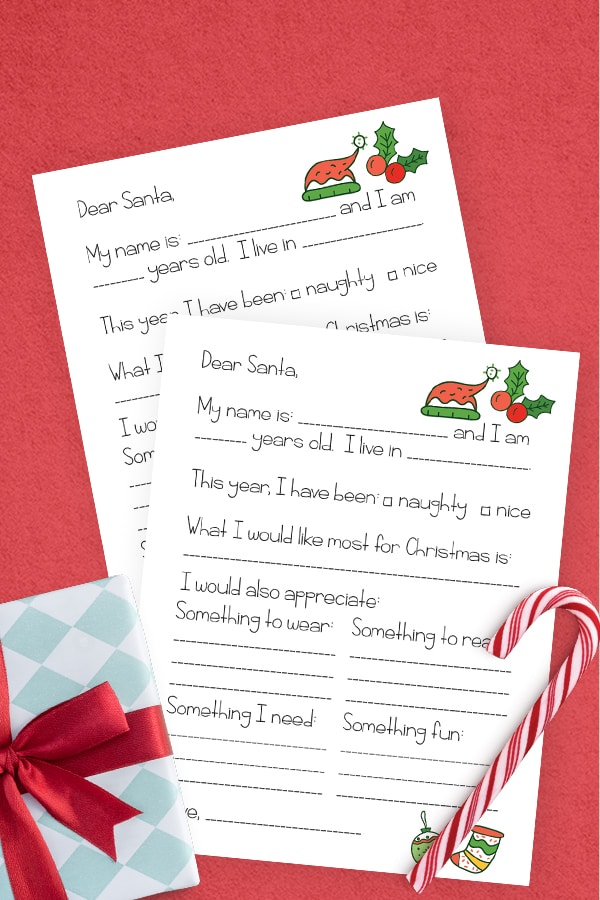 Dear Santa,
My name is: ____________ and I am
______ years old. I live in ____________
This yea I have been: □ naughty □ nice
What I Christmas is:
I wo
Som
Dear Santa,
My name is: ____________ and I am
______ years old. I live in ____________
This year, I have been: □ naughty □ nice
What I would like most for Christmas is:
I would also appreciate:
Something to wear: Something to rea
Something I need: Something fun:
ve, ____________